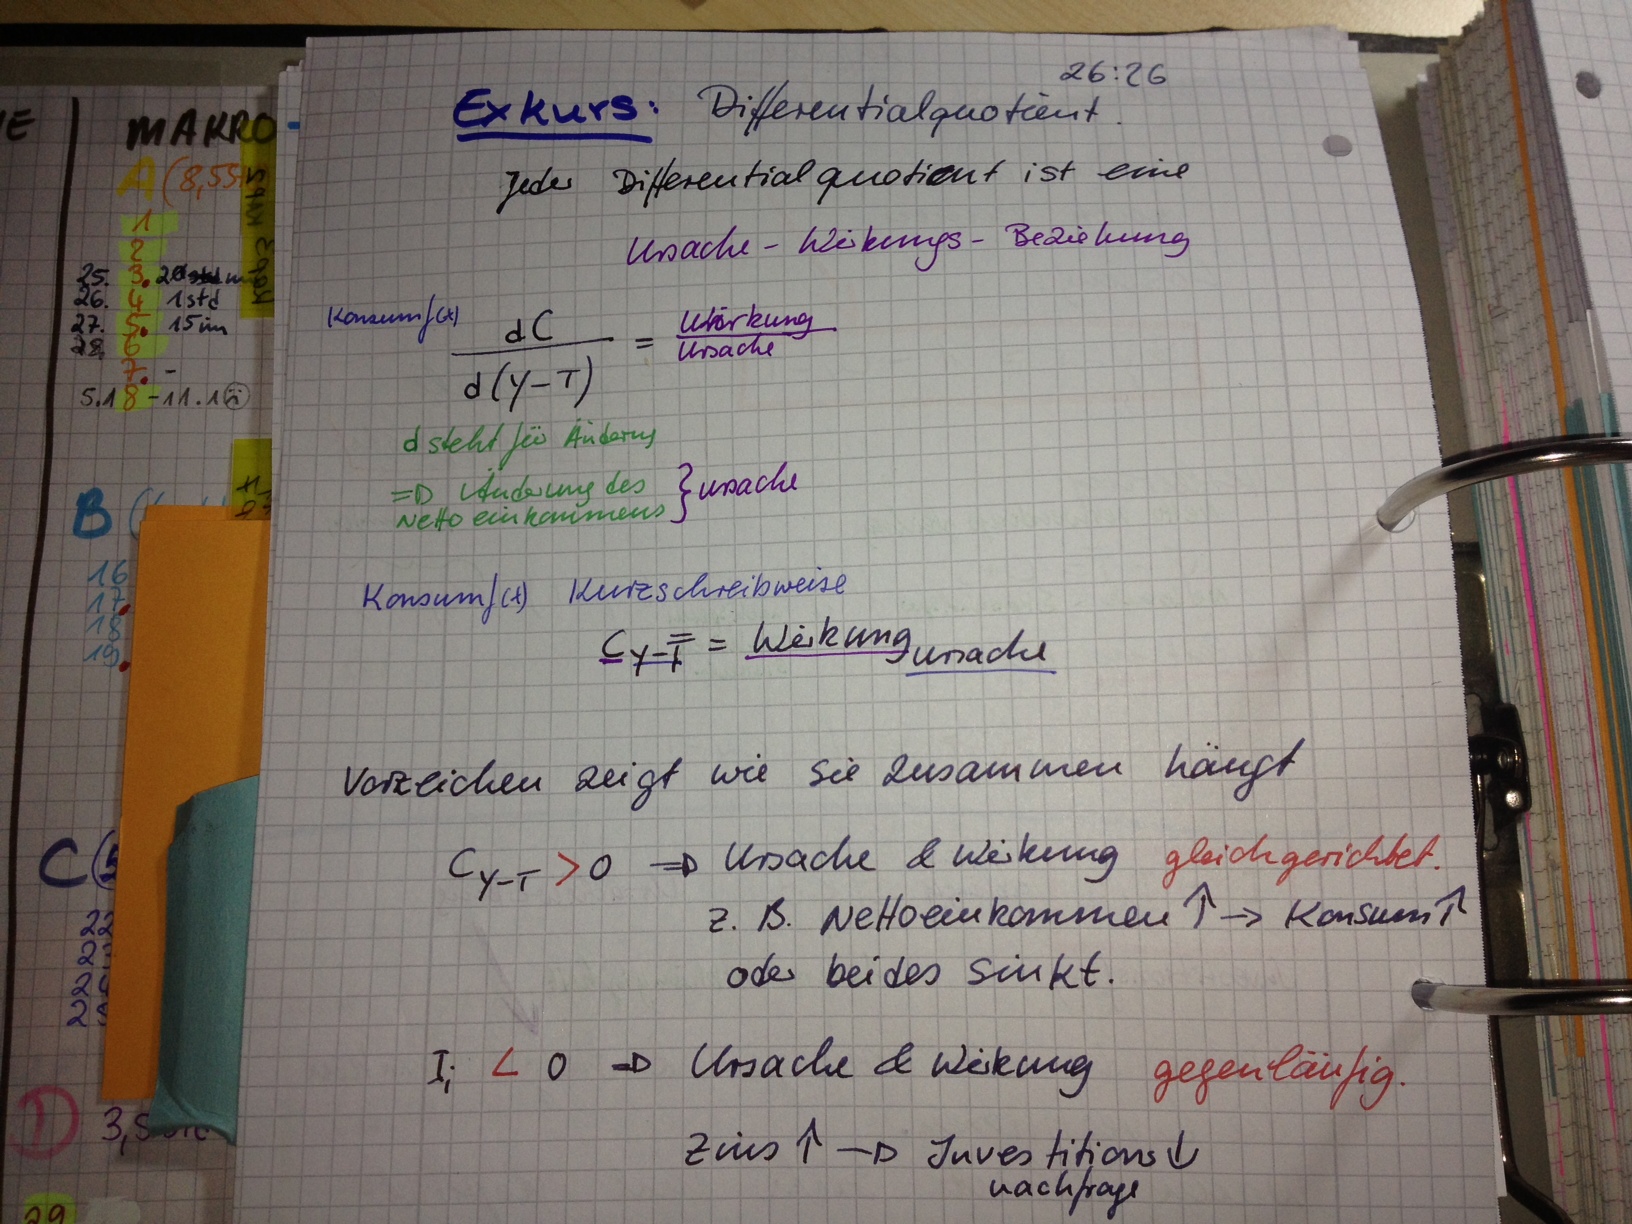 26:26
Exkurs: Differentialquotient.
Jeder Differentialquotient ist eine
Ursache - Wirkungs - Beziehung
Konsumf(t)
dC = Wirkung
d(Y-T) Ursache
d steht für Änderung
=> Änderung des } Ursache
Nettoeinkommens
Konsumf(t) Kurzschreibweise
C Y-T = Wirkung Ursache
Vorzeichen zeigt wie sie zusammen hängt
C Y-T > 0 => Ursache & Wirkung gleichgerichtet.
z. B. Nettoeinkommen ↑ -> Konsum ↑
oder beides sinkt.
I i < 0 => Ursache & Wirkung gegenläufig.
Zins ↑ -> Investitions ↓
nachfrage
MAKRO
A (8,55
1
2
25. 3.
26. 4 1std
27. 5. 15
28. 6
7. -
5.1 8 -11.1
B
16
17.
18
19.
C
22
D 3,5
29